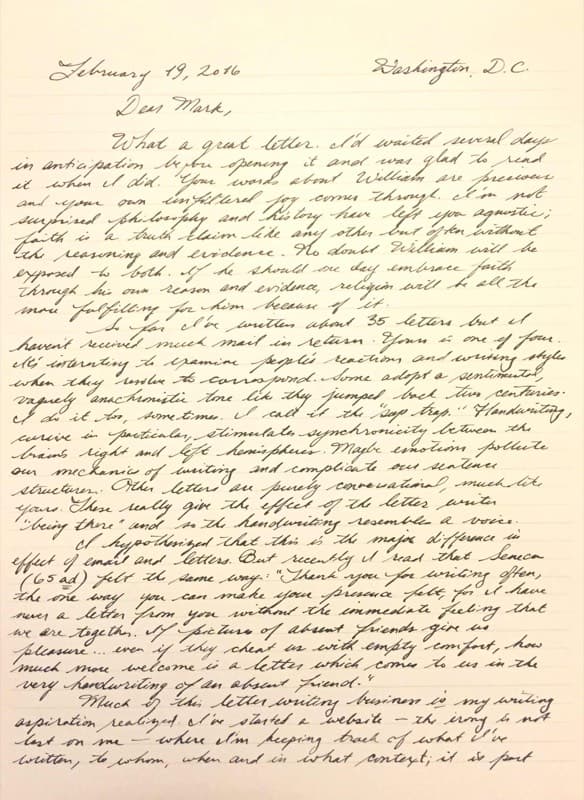 February 19, 2016 Washington, D.C.
Dear Mark,
What a great letter. I'd waited several days
in anticipation before opening it and was glad to read
it when I did. Your words about William are precious
and your own unfiltered joy comes through. I'm not
surprised philosophy and history have left you agnostic;
faith is a truth claim like any other but often without
the reasoning and evidence. No doubt William will be
exposed to both. If he should one day embrace faith
through his own reason and evidence, religion will be all the
more fulfilling for him because of it.
So far I've written about 35 letters but I
haven't received much mail in return. Yours is one of four.
It's interesting to examine people's reactions and writing styles
when they resolve to correspond. Some adopt a sentimental,
vaguely anachronistic tone like they jumped back two centuries.
I do it too, sometimes. I call it the "sap trap." Handwriting,
cursive in particular, stimulates synchronicity between the
brain's right and left hemispheres. Maybe emotions pollute
our mechanics of writing and complicate our sentence
structures. Other letters are purely conversational, much like
yours. These really give the effect of the letter writer
"being there" and so the handwriting resembles a voice.
I hypothesized that this is the major difference in
effect of email and letters. But recently I read that Seneca
(65 ad) felt the same way: "Thank you for writing often,
the one way you can make your presence felt, for I have
never a letter from you without the immediate feeling that
we are together. If pictures of absent friends give us
pleasure... even if they cheat us with empty comfort, how
much more welcome is a letter which comes to us in the
very handwriting of an absent friend."
Much of this letter writing business is my writing
aspiration realized. I've started a website – the irony is not
lost on me – where I'm keeping track of what I've
written, to whom, when and in what context; it is part